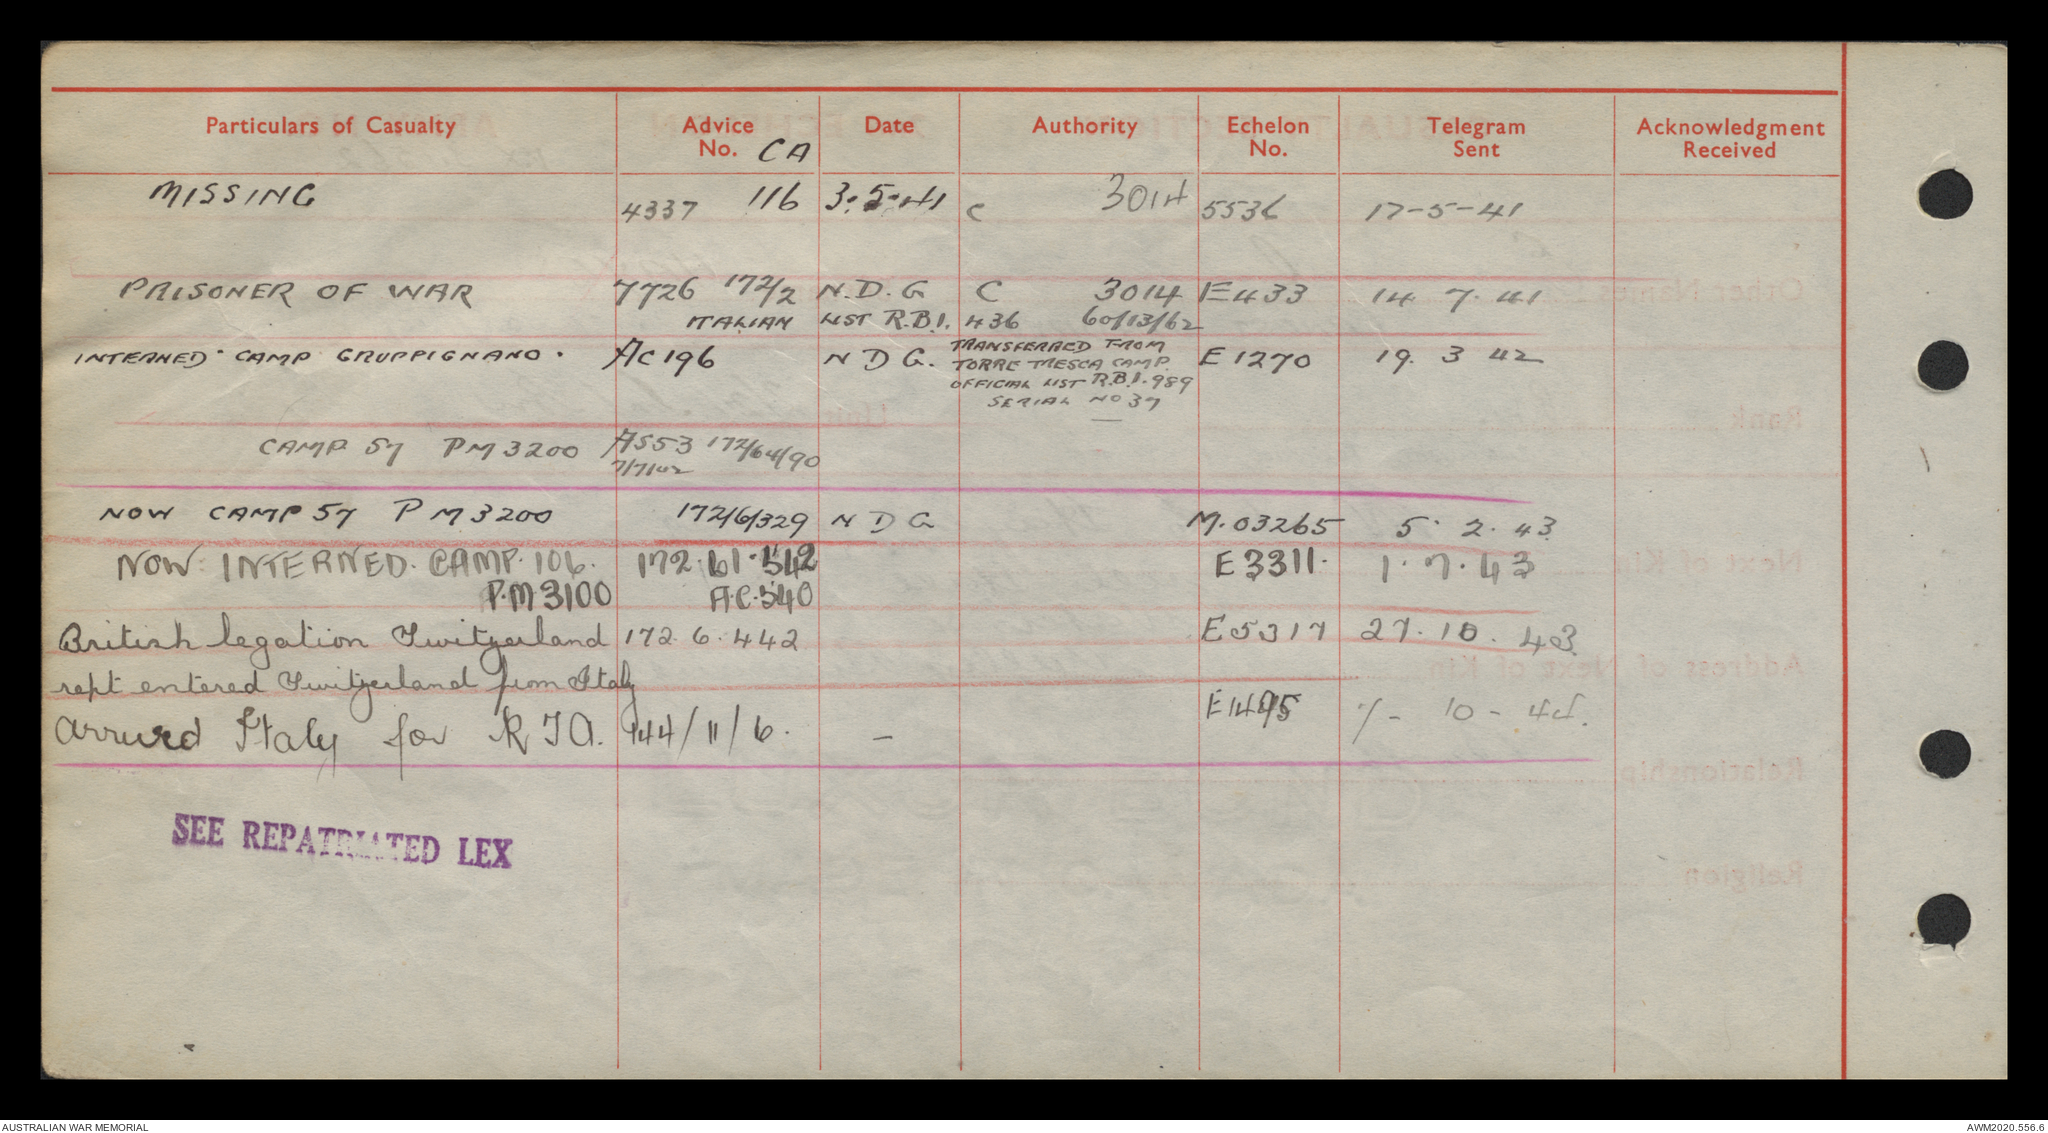 Particulars of Casualty Advice No. CA Date Authority Echelon No. Telegram Sent Acknowledgment Received
MISSING 4337 116 3.5.41 C 3014 5536 17-5-41
PRISONER OF WAR 7726 172/2 N.D.G C 3014 E433 14 7.41
ITALIAN LIST R.B.I. 436 60/13/62
INTERNED CAMP GRUPPIGNANO. AC196 N D G. TRANSFERRED FROM E1270 19. 3 42
TORRE TRESCA CAMP.
OFFICIAL LIST R.B.I. 989
SERIAL NO 37
CAMP 57 PM 3200 AS53 172/64/90
7/7/42
NOW CAMP 57 P M 3200 172/6/329 N D G M.03265 5. 2. 43
NOW INTERNED. CAMP. 106. 172.61.342 E3311. 1.7.43
P.M.3100 A.C.340
British legation Switzerland 172.6.442 E5317 27.10.43
rept entered Switzerland from Italy
Arrived Italy for R T A. 144/11/6. — 7-10-44.
SEE REPATRIATED LEX
AUSTRALIAN WAR MEMORIAL AWM2020.556.6